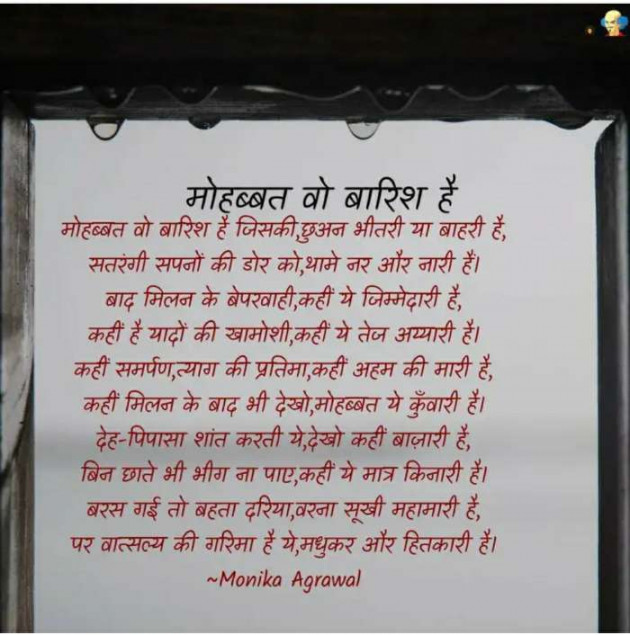 मोहब्बत वो बारिश है
मोहब्बत वो बारिश है जिसकी,छुअन भीतरी या बाहरी है,
सतरंगी सपनों की डोर को,थामे नर और नारी हैं।
बाद मिलन के बेपरवाही,कहीं ये जिम्मेदारी है,
कहीं है यादों की खामोशी,कहीं ये तेज अय्यारी है।
कहीं समर्पण,त्याग की प्रतिमा,कहीं अहम की मारी है,
कहीं मिलन के बाद भी देखो,मोहब्बत ये कुँवारी है।
देह-पिपासा शांत करती ये,देखो कहीं बाज़ारी है,
बिन छाते भी भीग ना पाए,कहीं ये मात्र किनारी है।
बरस गई तो बहता दरिया,वरना सूखी महामारी है,
पर वात्सल्य की गरिमा है ये,मधुकर और हितकारी है।
~Monika Agrawal